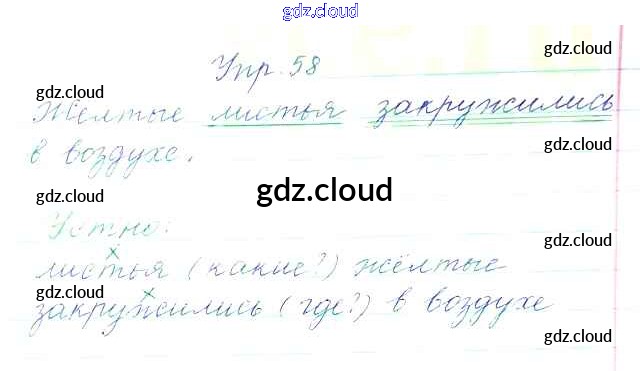 gdz.cloud
Упр. 58
gdz.cloud
gdz.cloud
Жёлтые листья закружились
gdz.cloud
в воздухе.
gdz.cloud
gdz.cloud
gdz.cloud
Устно:
gdz.cloud
листья (какие?) жёлтые
gdz.cloud
закружились (где?) в воздухе
gdz.cloud